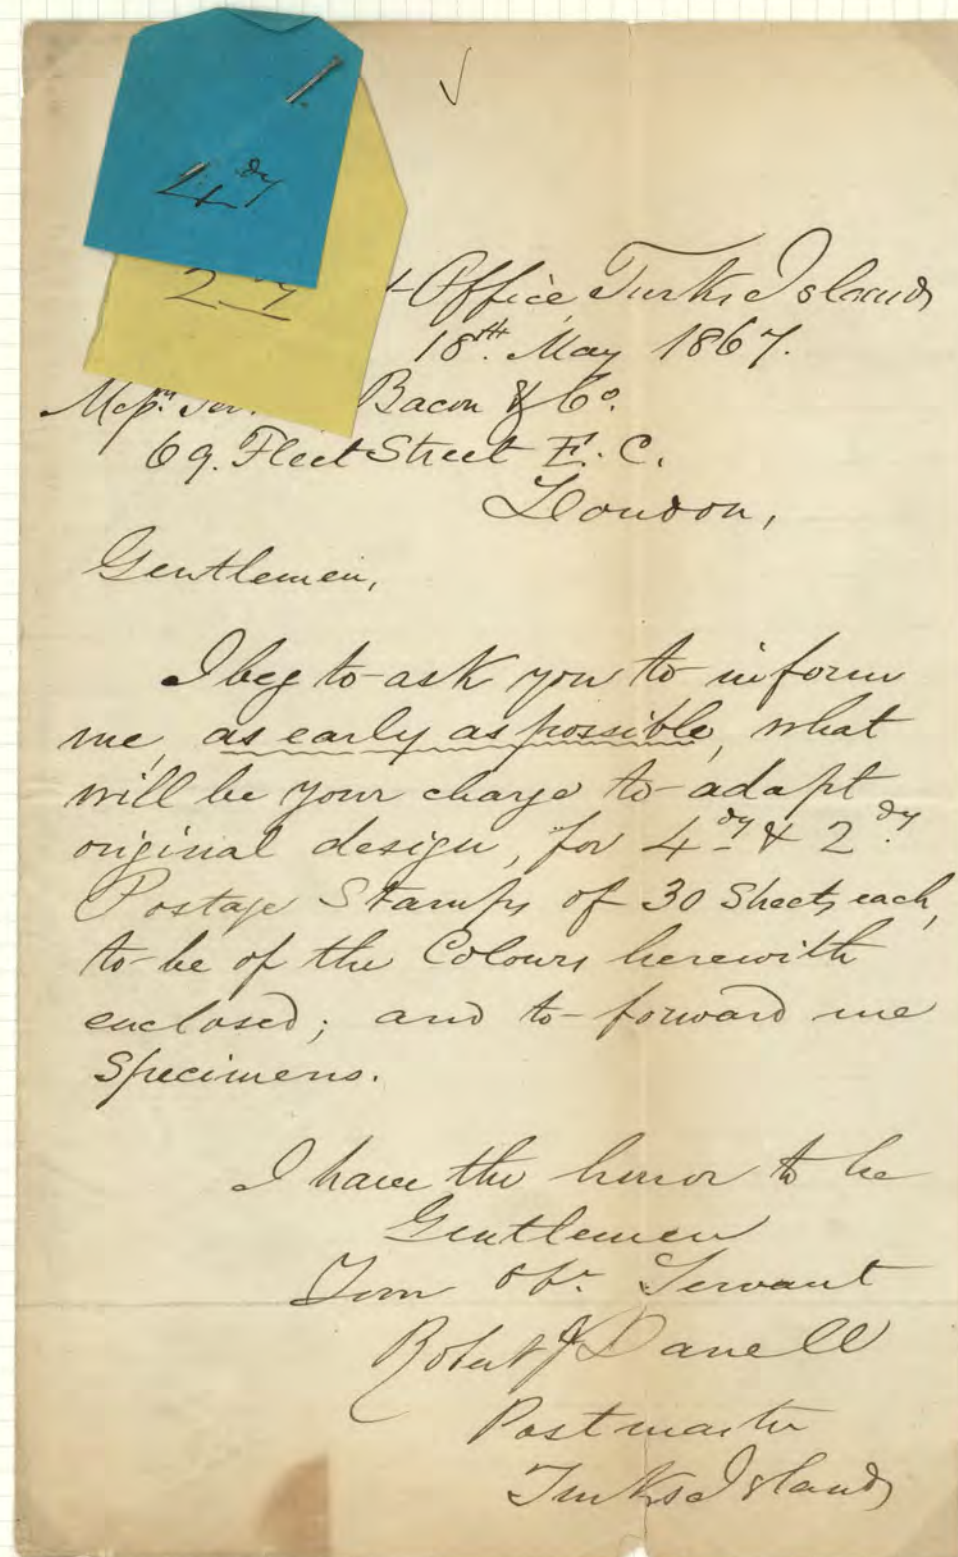 4dy
2dy
Office, Turks Islands
18th. May 1867.
Bacon & Co.
69. Fleet Street E.C.
London,
Gentlemen,
I beg to ask you to inform
me, as early as possible, what
will be your charge to adapt
original design, for 4dy & 2dy.
Postage Stamps of 30 Sheets each,
to be of the Colours herewith
enclosed; and to forward me
Specimens.
I have the honor to be
Gentlemen
Your Obt. Servant
Robert J
Postmaster
Turks Islands